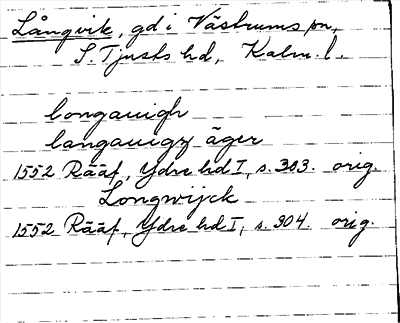 Långvik, gd i Västrums sn,
S. Tjusts hd, Kalm. l.
longauigh
langauigz äger
1552 Rääf, Ydre hd I, s. 303. orig.
Longwijck
1552 Rääf, Ydre hd I, s. 304. orig.